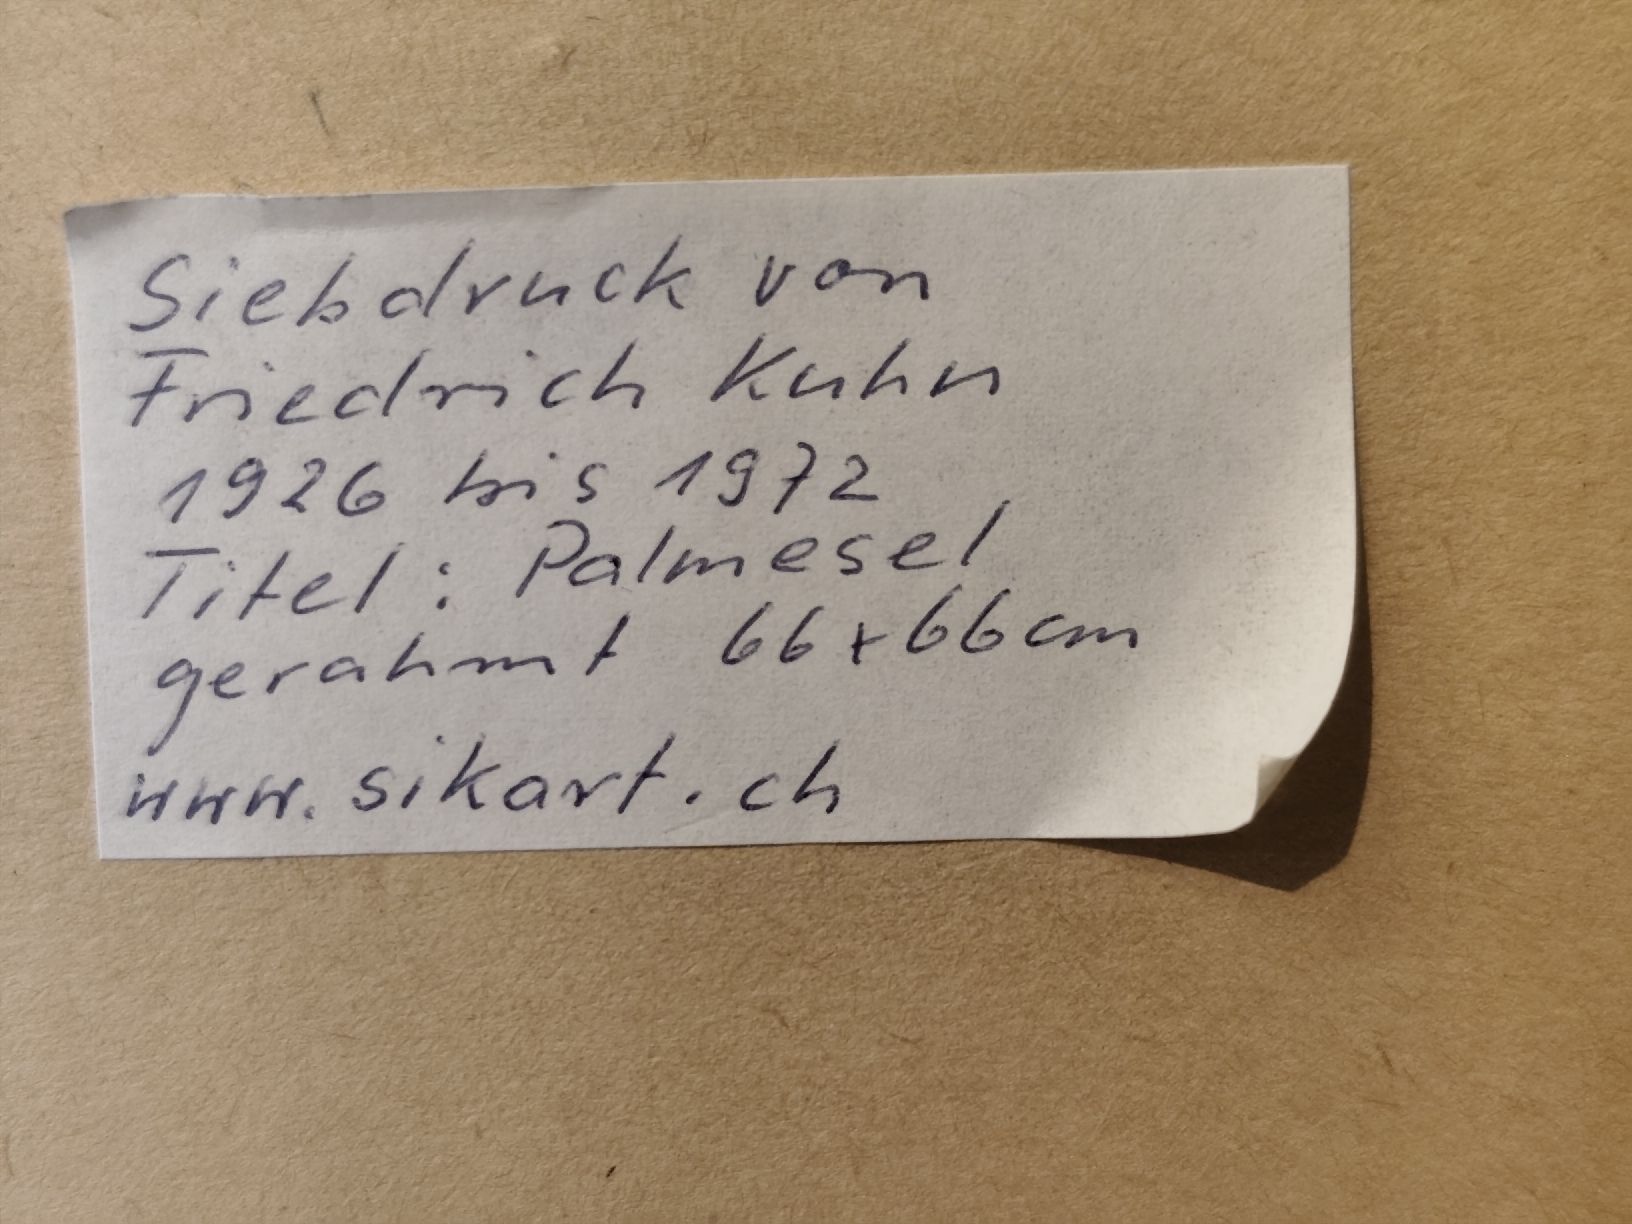 Siebdruck von
Friedrich Kuhn
1926 bis 1972
Titel: Palmesel
gerahmt 66x66cm
www.sikart.ch